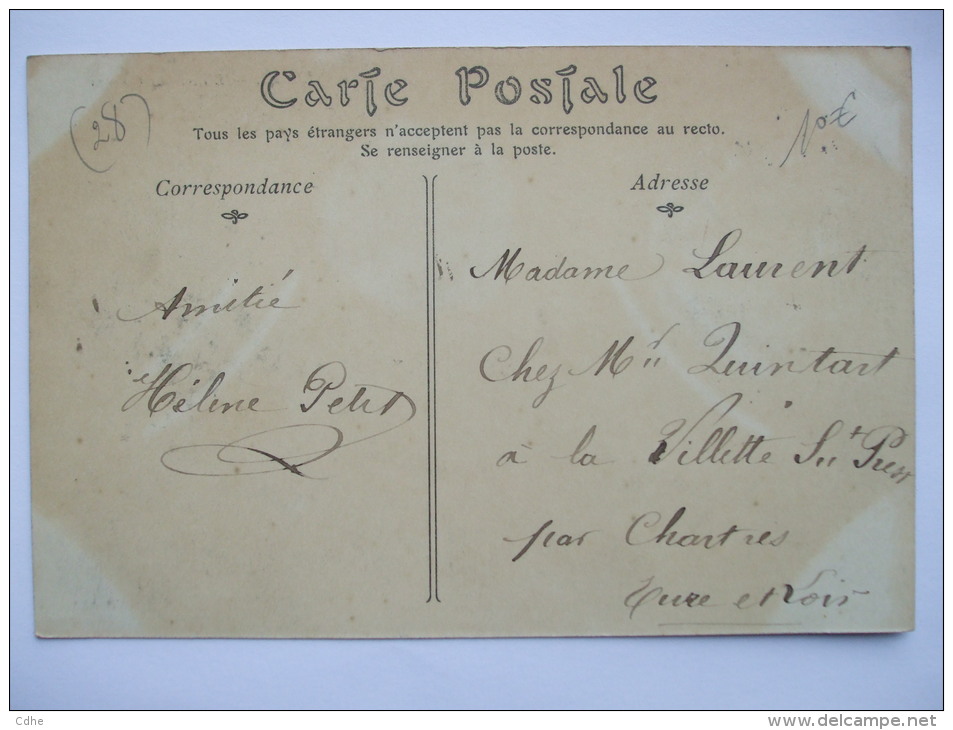 Carte Postale
(28)
10€
Tous les pays étrangers n'acceptent pas la correspondance au recto.
Se renseigner à la poste.
Correspondance
Adresse
Amitié
Hélène Petit
Madame Laurent
Chez Mr Quintart
à la Villette St Prest
par Chartres
Eure et Loir
Cdhe
www.delcampe.net